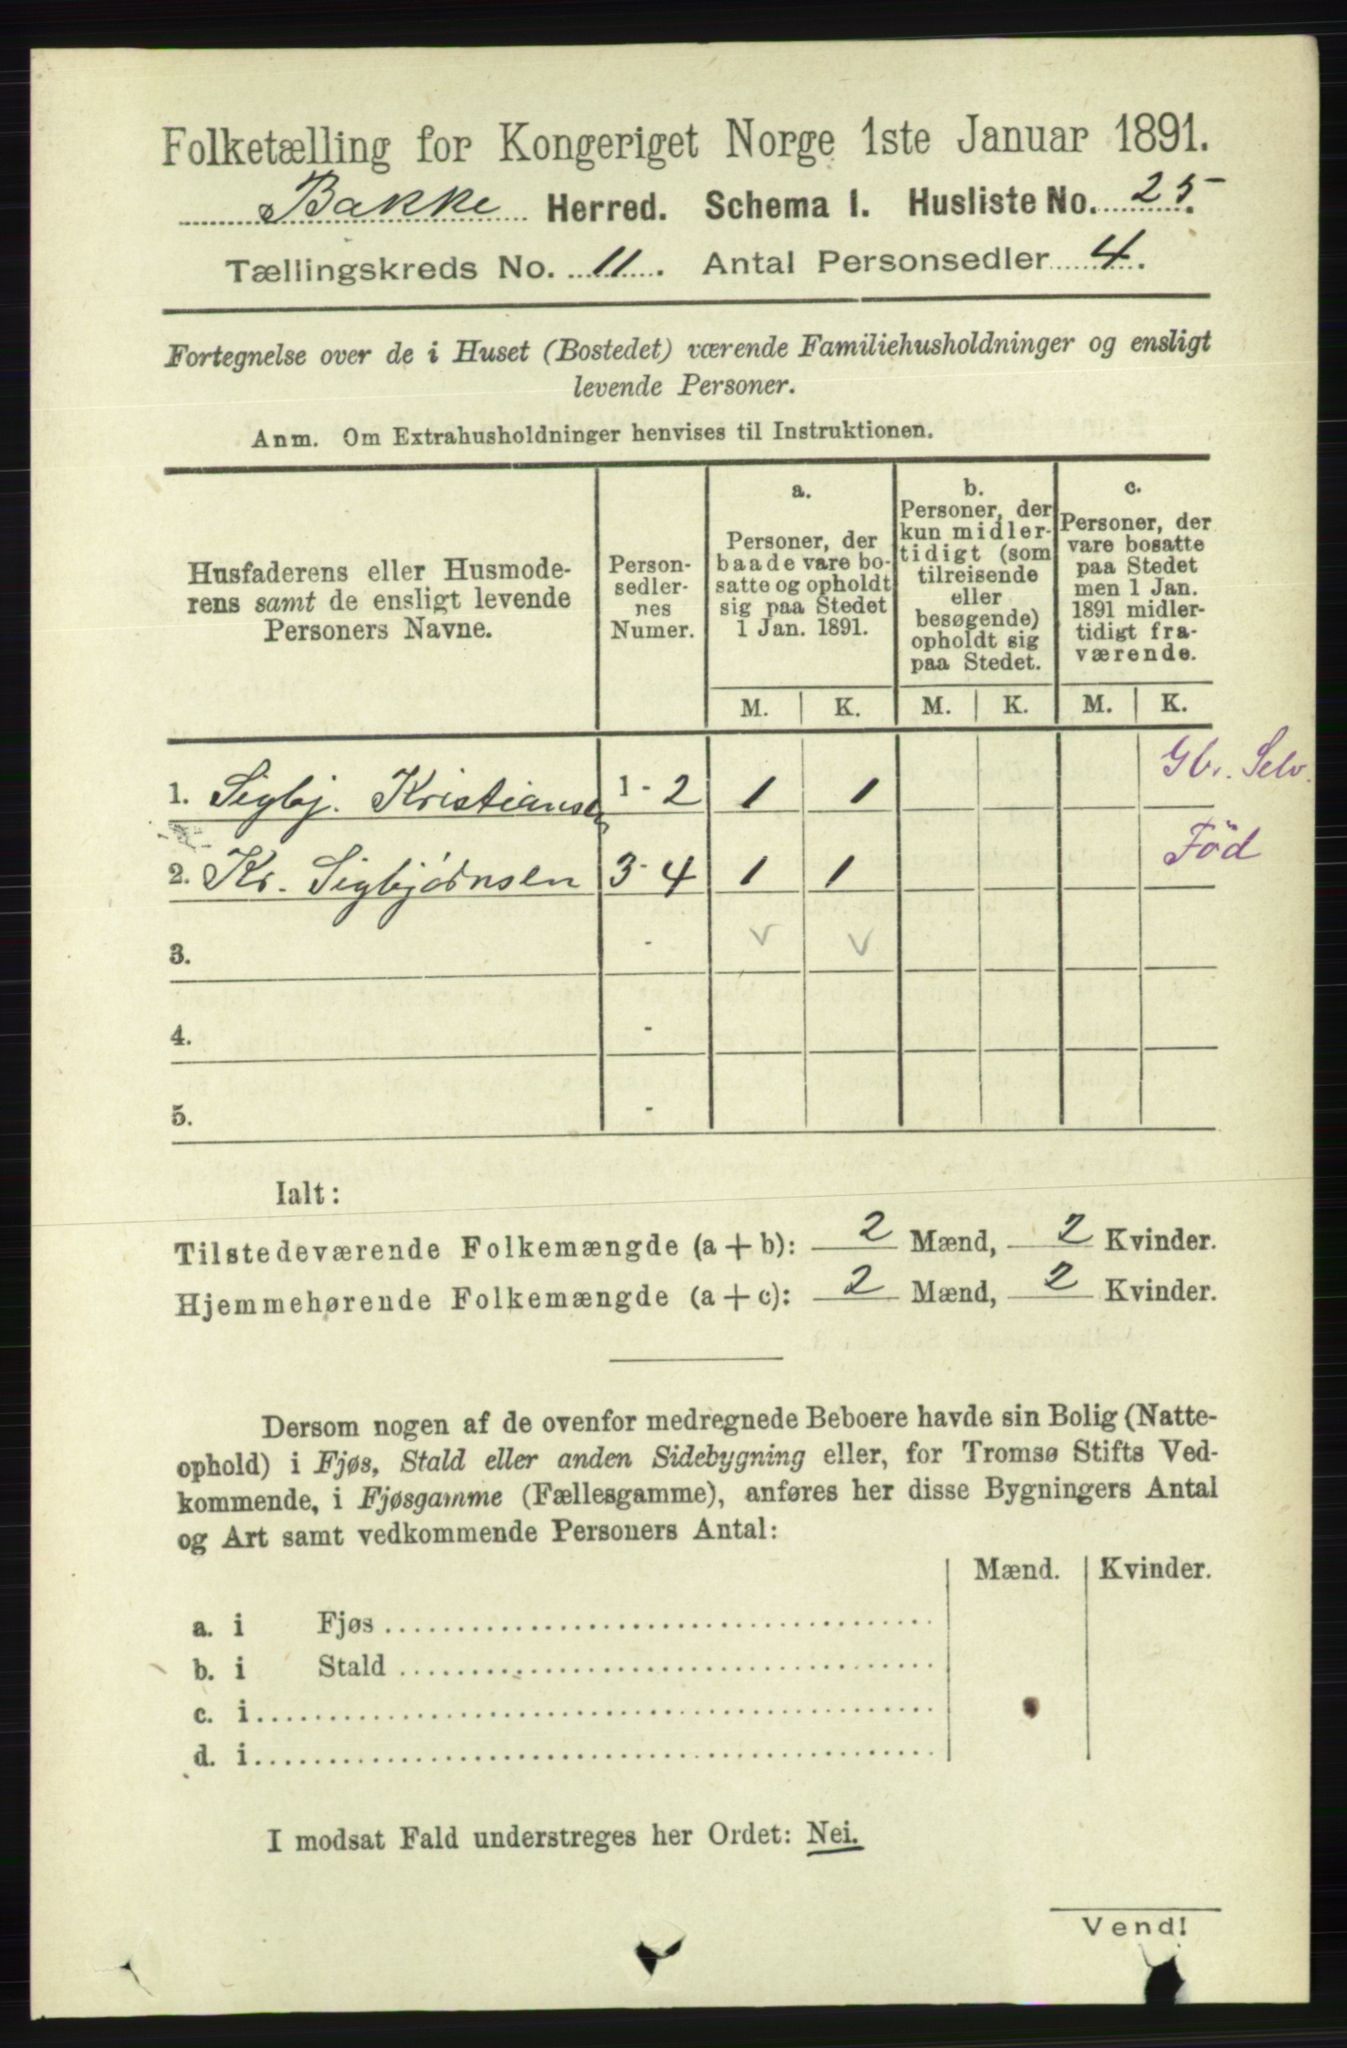 Folketælling for Kongeriget Norge 1ste Januar 1891.
Bakke Herred. Schema I. Husliste No. 25.
Tællingskreds No. 11. Antal Personsedler 4.
Fortegnelse over de i Huset (Bostedet) værende Familiehusholdninger og ensligt
levende Personer.
Anm. Om Extrahusholdninger henvises til Instruktionen.
Husfaderens eller Husmode-
rens samt de ensligt levende
Personers Navne.
Person-
sedler-
nes
Numer.
a.
Personer, der
baade vare bo-
satte og opholdt
sig paa Stedet
1 Jan. 1891.
b.
Personer, der
kun midler-
tidigt (som
tilreisende
eller
besøgende)
opholdt sig
paa Stedet.
c.
Personer, der
vare bosatte
paa Stedet
men 1 Jan.
1891 midler-
tidigt fra-
værende.
M. K. M. K. M. K.
1. Sigbj. Kristiansen 1-2 1 1 Gbr. Selv.
2. Kr. Sigbjørnsen 3-4 1 1 Föd
3. - v v
4. -
5. -
Ialt:
Tilstedeværende Folkemængde (a + b): 2 Mænd, 2 Kvinder.
Hjemmehørende Folkemængde (a + c): 2 Mænd, 2 Kvinder.
Dersom nogen af de ovenfor medregnede Beboere havde sin Bolig (Natte-
ophold) i Fjøs, Stald eller anden Sidebygning eller, for Tromsø Stifts Ved-
kommende, i Fjøsgamme (Fællesgamme), anføres her disse Bygningers Antal
og Art samt vedkommende Personers Antal:
Mænd. Kvinder.
a. i Fjøs
b. i Stald
c. i
d. i
I modsat Fald understreges her Ordet: Nei.
Vend!